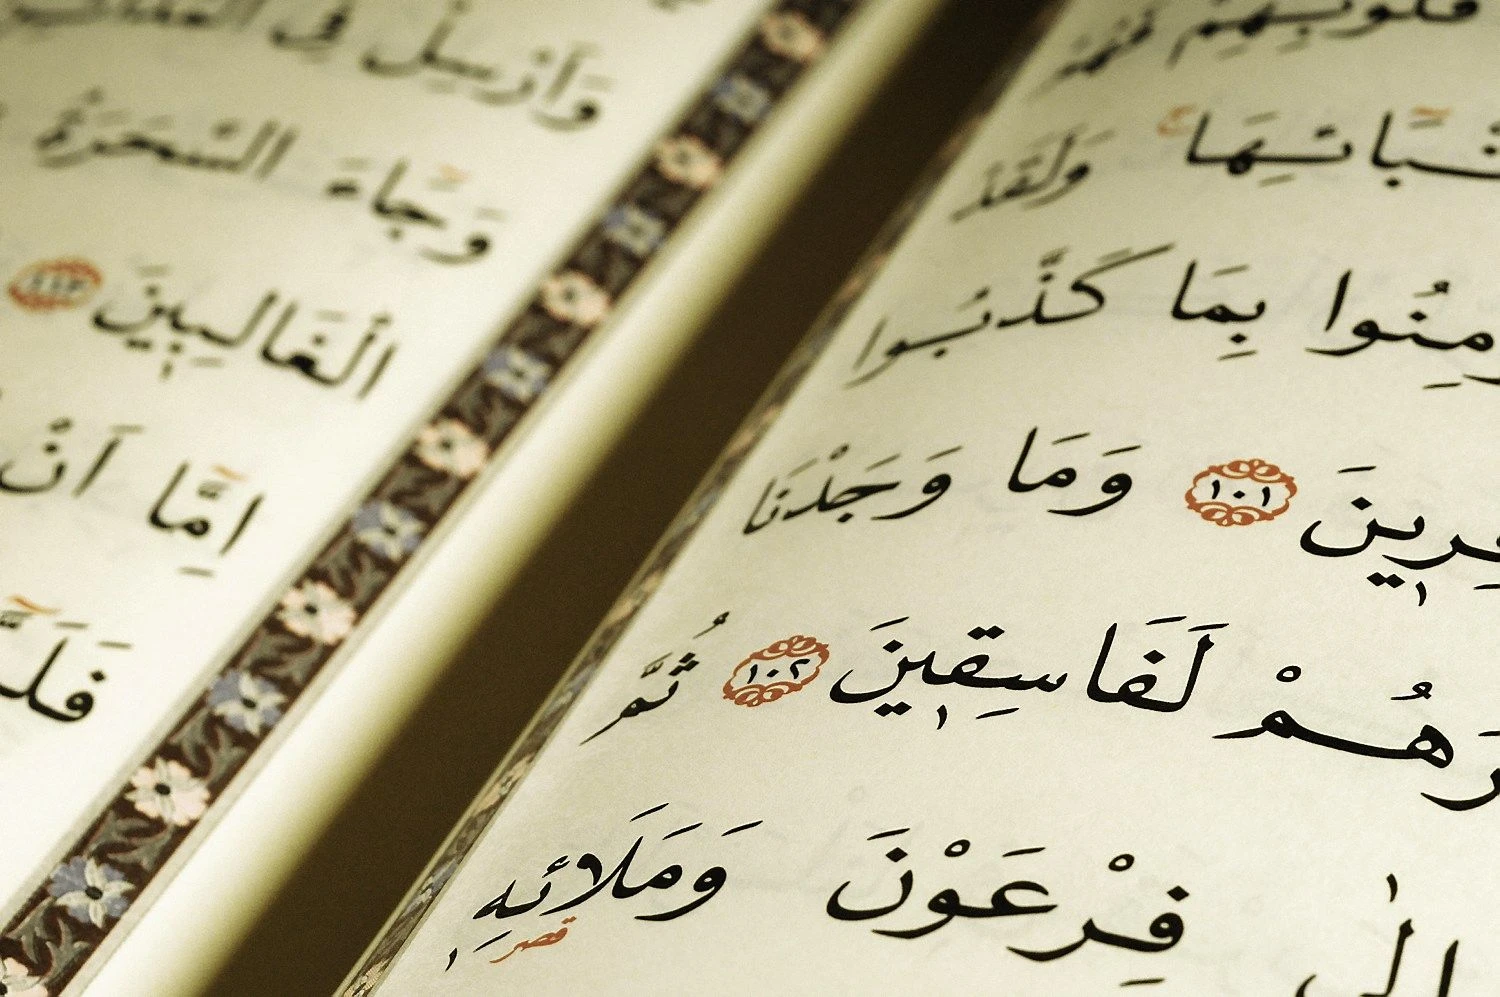 قُلُوبِهِمْ فَهُمْ
ـبَٓائِهَاۚ وَلَقَدْ
ـمِنُوا بِمَا كَذَّبُوا
ـفِرِينَ ﴿١٠١﴾ وَمَا وَجَدْنَا
ـرَهُمْ لَفَاسِقِينَ ﴿١٠٢﴾ ثُمَّ
اِلٰى فِرْعَوْنَ وَمَلَائِهِ
قصر
وَاَرْسِلْ فِي
وَجَٓاءَ السَّحَرَةُ
الْغَالِبِينَ ﴿١١٣﴾
اِمَّٓا اَنْ
فَلَمَّٓا